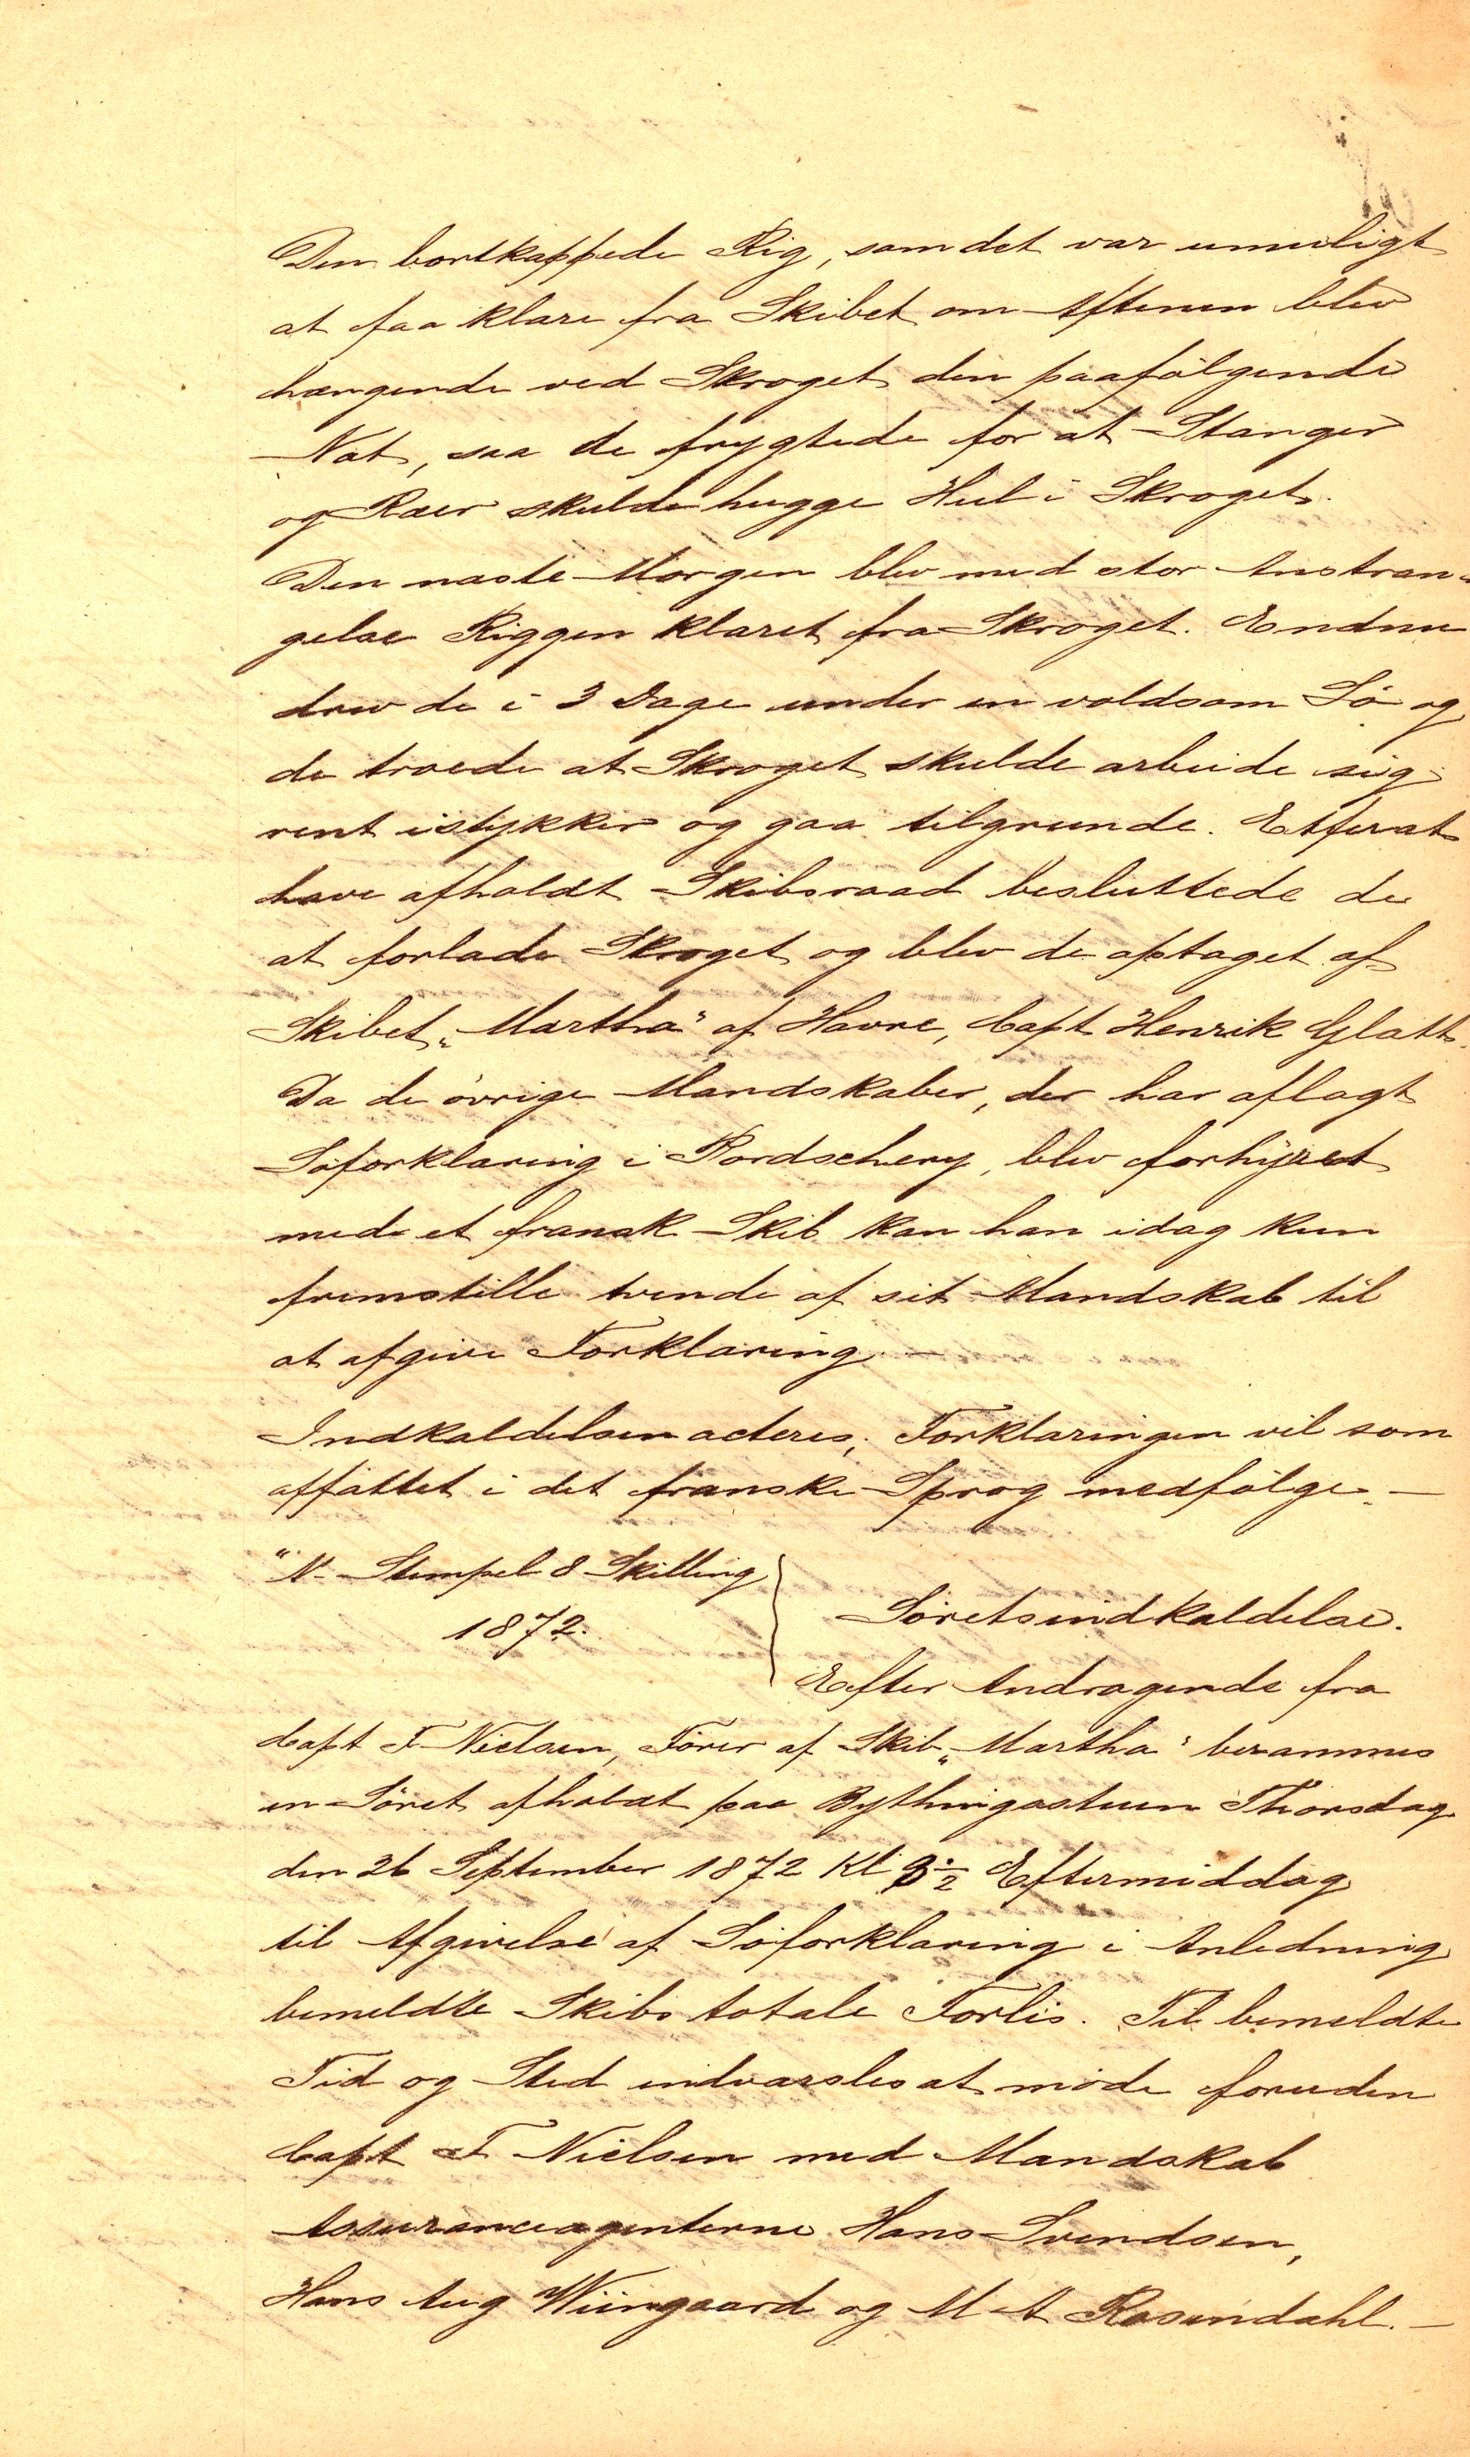 Den bortkappede Rig, som det var umuligt
at faa klare fra Skibet om Aftenen blev
hængende ved Skroget den paafølgende
Nat, saa de frygtede for at Stænger
og Ræer skulde hugge Hul i Skroget.
Den næste Morgen blev med stor Anstræn-
gelse Riggen klaret fra Skroget. Endnu
drev de i 3 Dage under en voldsom Sö og
de troede at Skroget skulde arbeide sig
rent istykker og gaa tilgrunde. Efterat
have afholdt Skibsraad besluttede de
at forlade Skroget og blev de optaget af
Skibet „Martha" af Havre, Capt Henrik Glatt.
Da de övrige Mandskaber, der har aflagt
Söforklaring i Pordschery, blev forhyret
med et fransk Skib kan han idag kun
fremstille tvende af sit Mandskab til
at afgive Forklaring. —
Indkaldelsen acteres, Forklaringen vil som
affattet i det franske Sprog medfølge. —
"N. Stempel 8 Skilling
1872.
Söretsindkaldelse.
Efter Andragende fra
Capt F Nielsen, Förer af Skib „Martha" berammes
en Söret afholdt paa Bythingsstuen Thorsdag
den 26 September 1872 Kl 3½ Eftermiddag
til Afgivelse af Söforklaring i Anledning
bemeldte Skibs totale Forlis. Til bemeldte
Tid og Sted indvarsles at möde foruden
Capt F Nielsen med Mandskab
Assuranceagenterne Hans Svendsen,
Hans Aug Wiingaard og M A Rosendahl. —